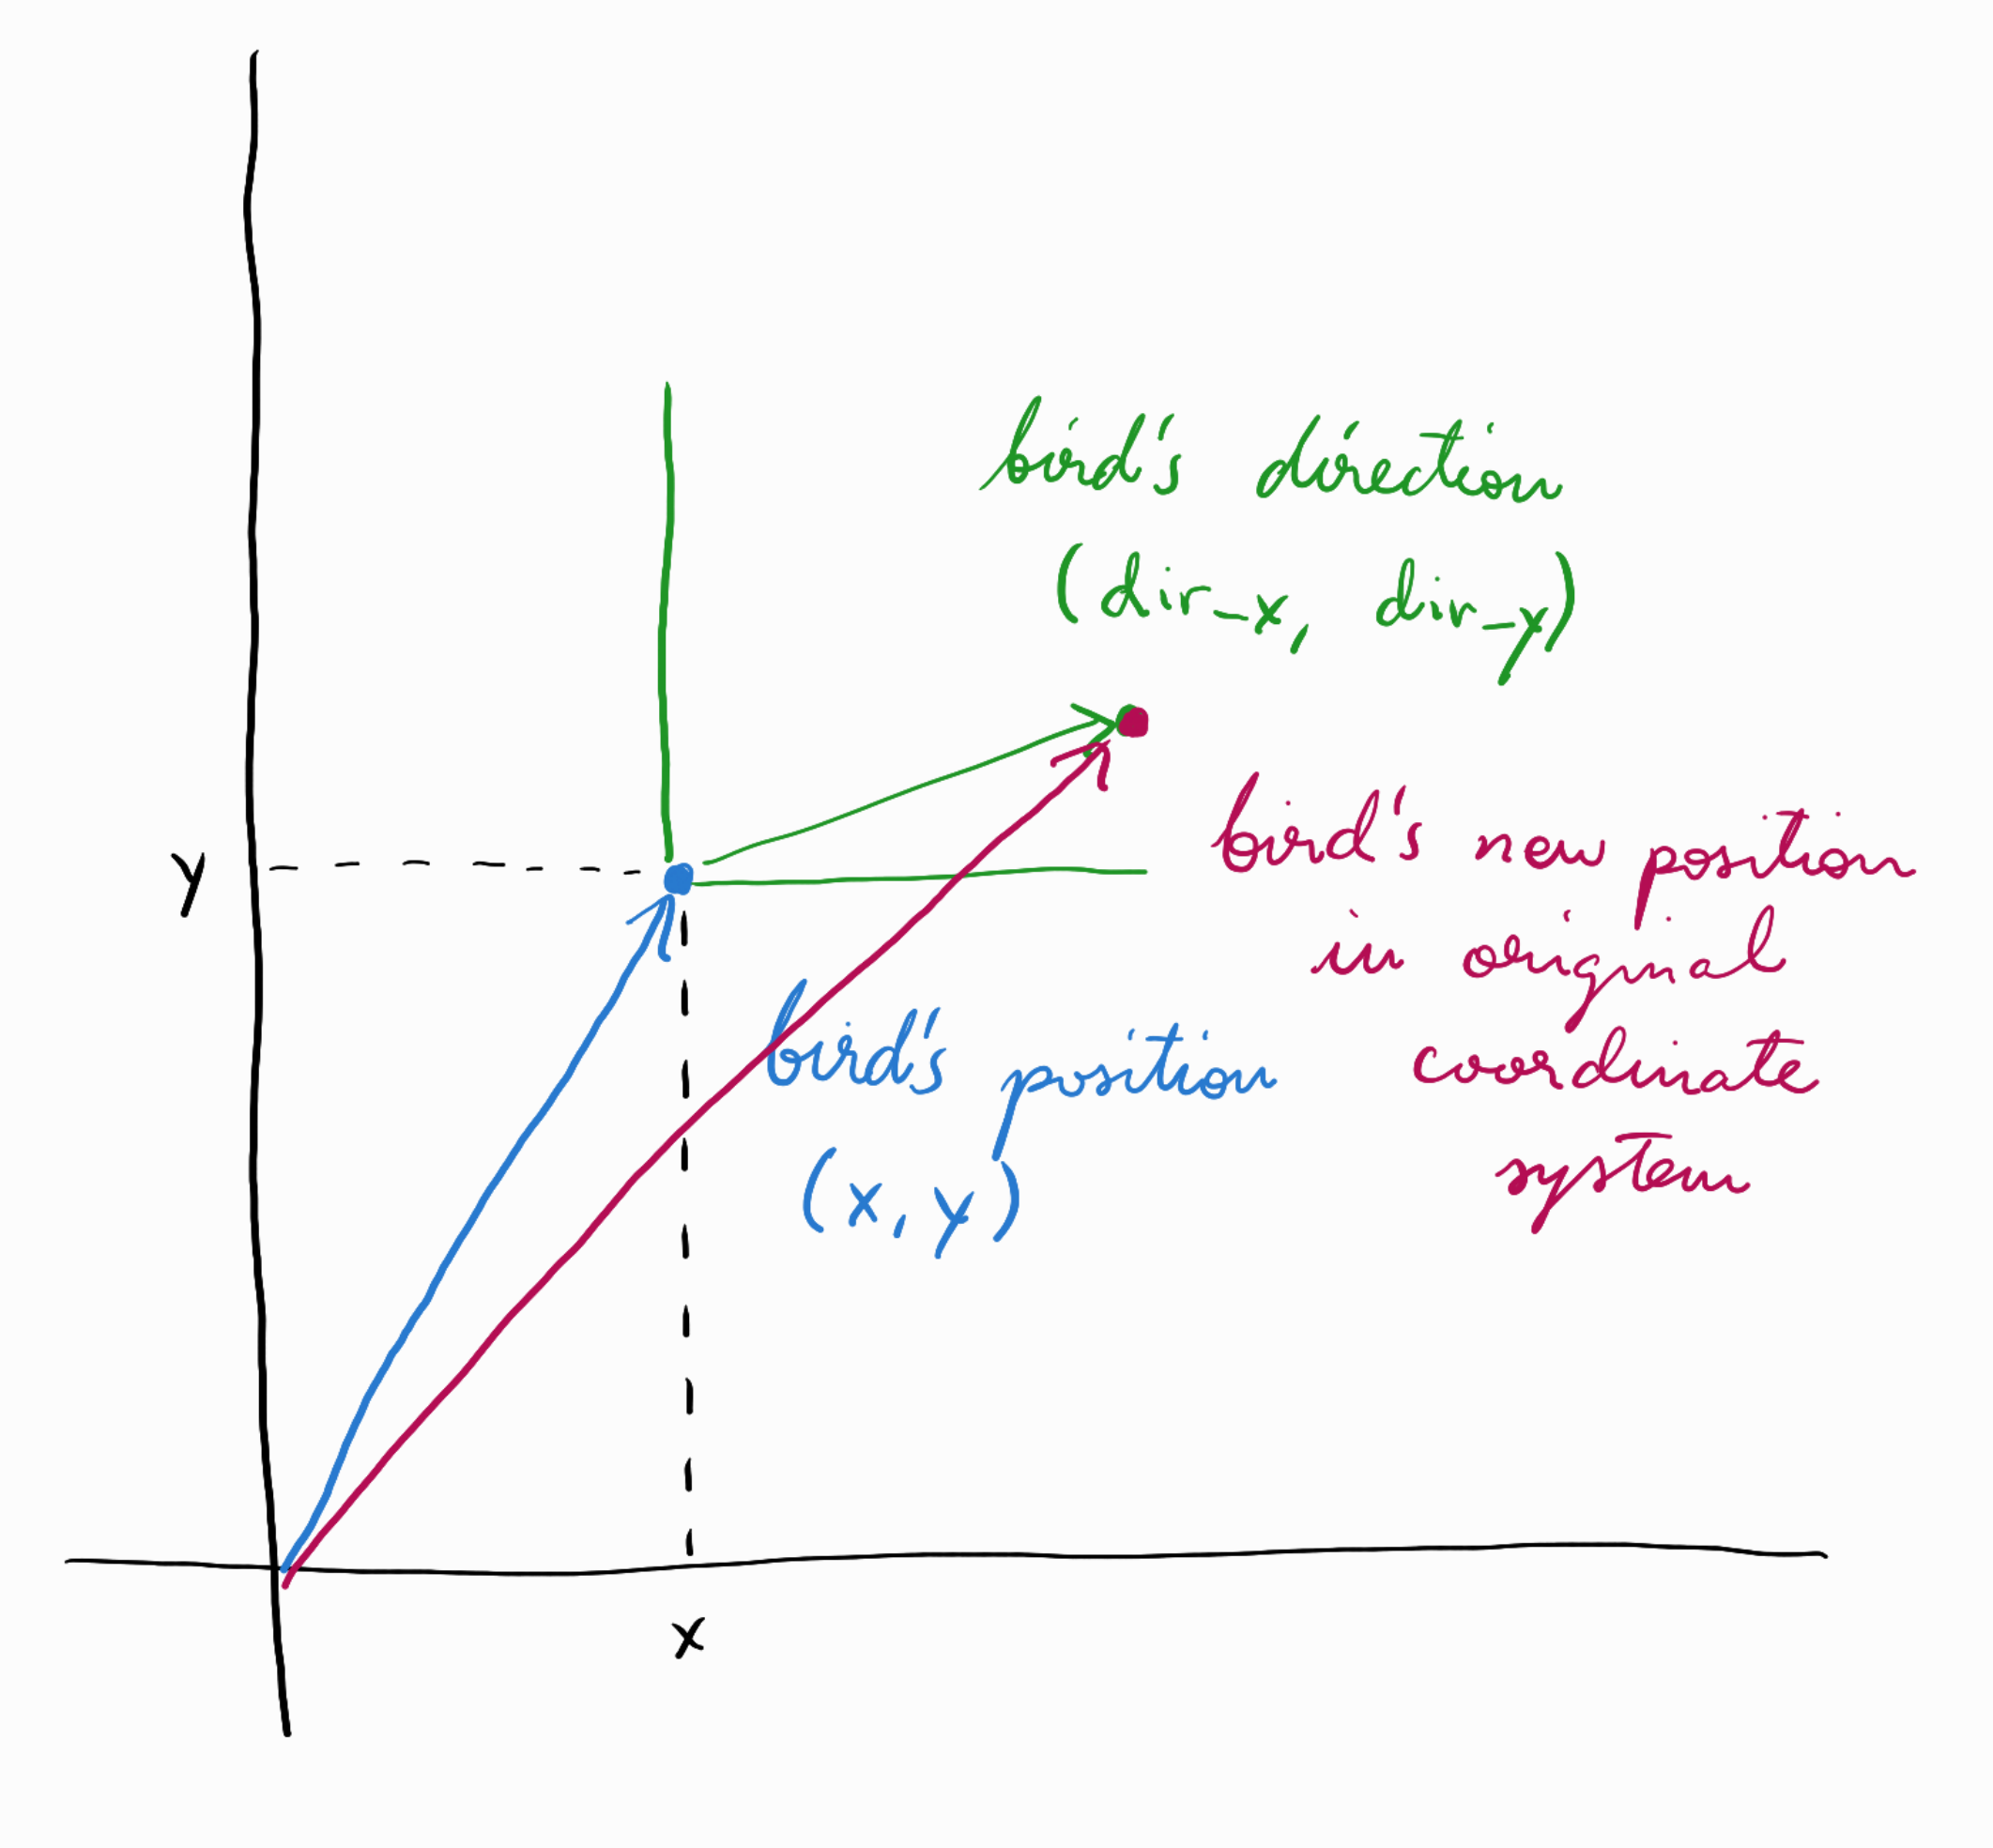 bird's direction
(dir_x, dir_y)
y
bird's new position
in original
coordinate
system
bird's position
(x, y)
x